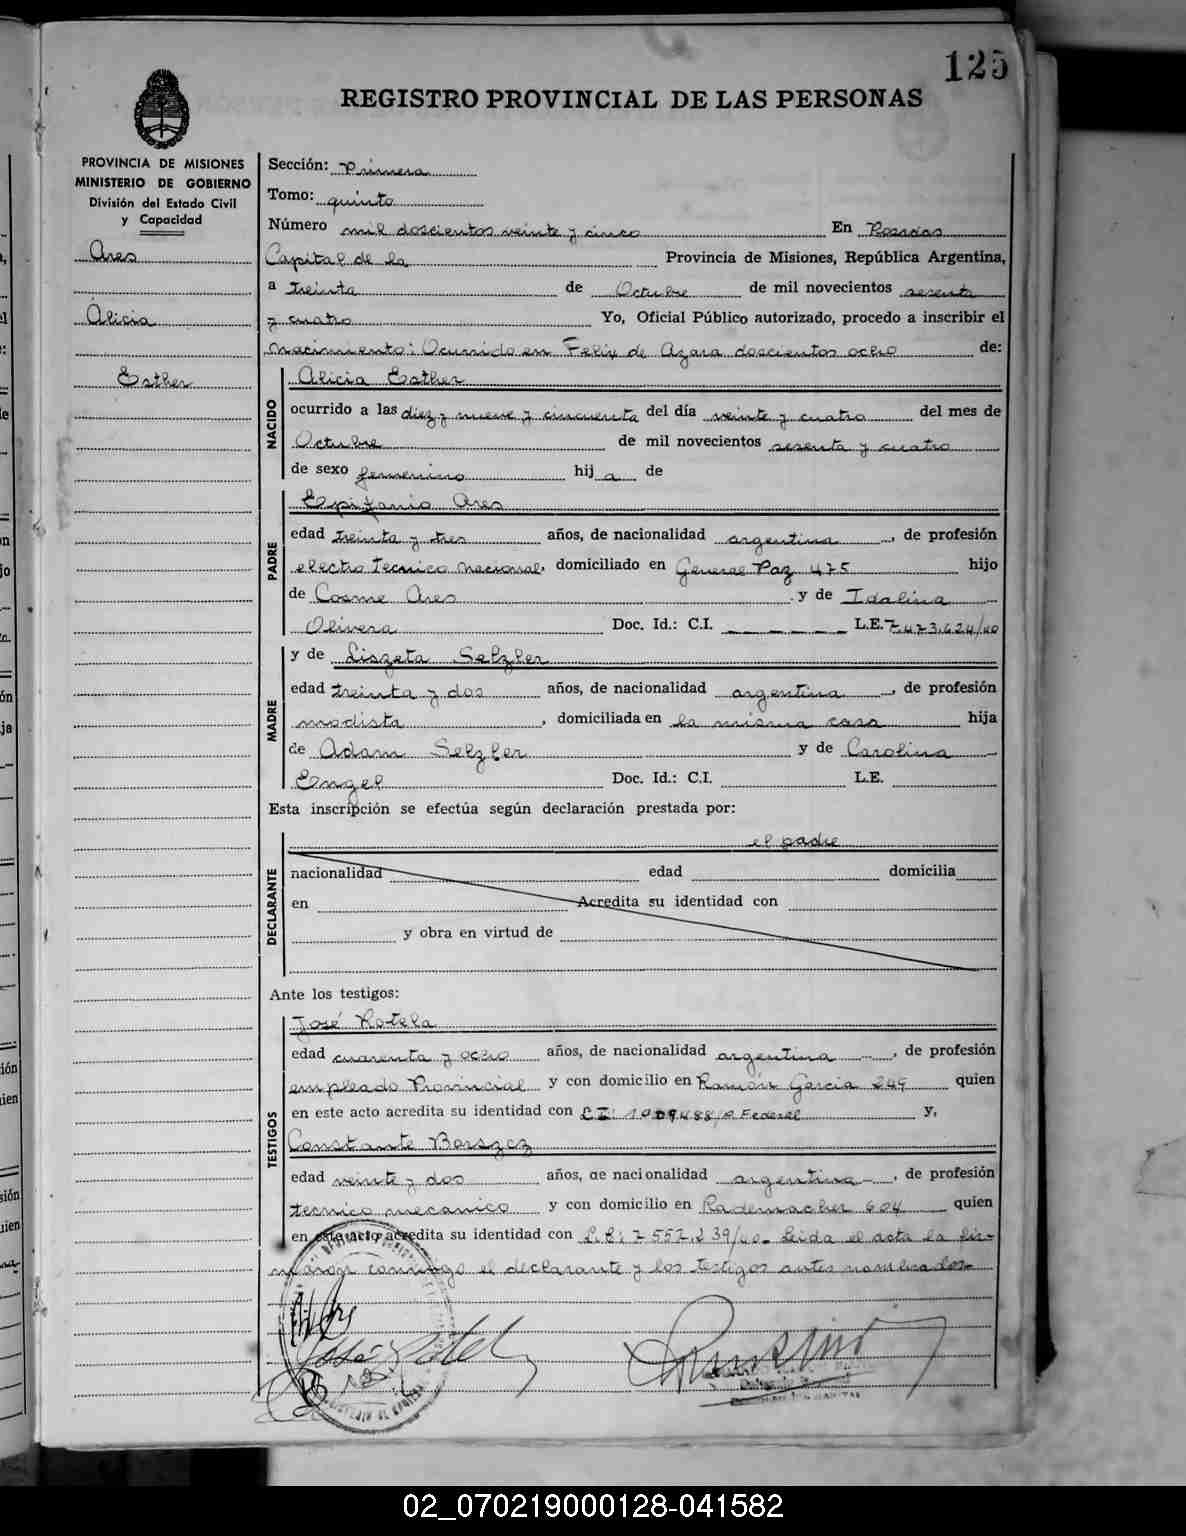 125
REGISTRO PROVINCIAL DE LAS PERSONAS
PROVINCIA DE MISIONES
MINISTERIO DE GOBIERNO
División del Estado Civil
y Capacidad
Ares
Alicia
Esther
Sección: Primera
Tomo: quinto
Número mil doscientos veinte y cinco En Posadas
Capital de la Provincia de Misiones, República Argentina,
a treinta de Octubre de mil novecientos sesenta
y cuatro Yo, Oficial Público autorizado, procedo a inscribir el
nacimiento: Ocurrido en Felix de Azara doscientos ocho de:
NACIDO
Alicia Esther
ocurrido a las diez y nueve y cincuenta del día veinte y cuatro del mes de
Octubre de mil novecientos sesenta y cuatro
de sexo femenino hij a de
PADRE
Epifanio Ares
edad treinta y tres años, de nacionalidad argentina, de profesión
electro tecnico nacional, domiciliado en General Paz 475 hijo
de Cosme Ares y de Idalina
Olivera Doc. Id.: C.I. L.E. 7.473.624/40
MADRE
y de Liszeta Selzler
edad treinta y dos años, de nacionalidad argentina, de profesión
modista, domiciliada en la misma casa hija
de Adam Selzler y de Carolina
Engel Doc. Id.: C.I. L.E.
Esta inscripción se efectúa según declaración prestada por:
DECLARANTE
el padre
nacionalidad edad domicilia
en Acredita su identidad con
y obra en virtud de
Ante los testigos:
TESTIGOS
José Rotela
edad cuarenta y ocho años, de nacionalidad argentina, de profesión
empleado Provincial y con domicilio en Ramón Garcia 249 quien
en este acto acredita su identidad con Federal y,
Constante Borszcz
edad veinte y dos años, de nacionalidad argentina, de profesión
tecnico mecanico y con domicilio en Rademacher 604 quien
en este acto acredita su identidad con Leida el acta la fir-
maron conmigo el declarante y los testigos antes nombrados
José Rotela
02_070219000128-041582